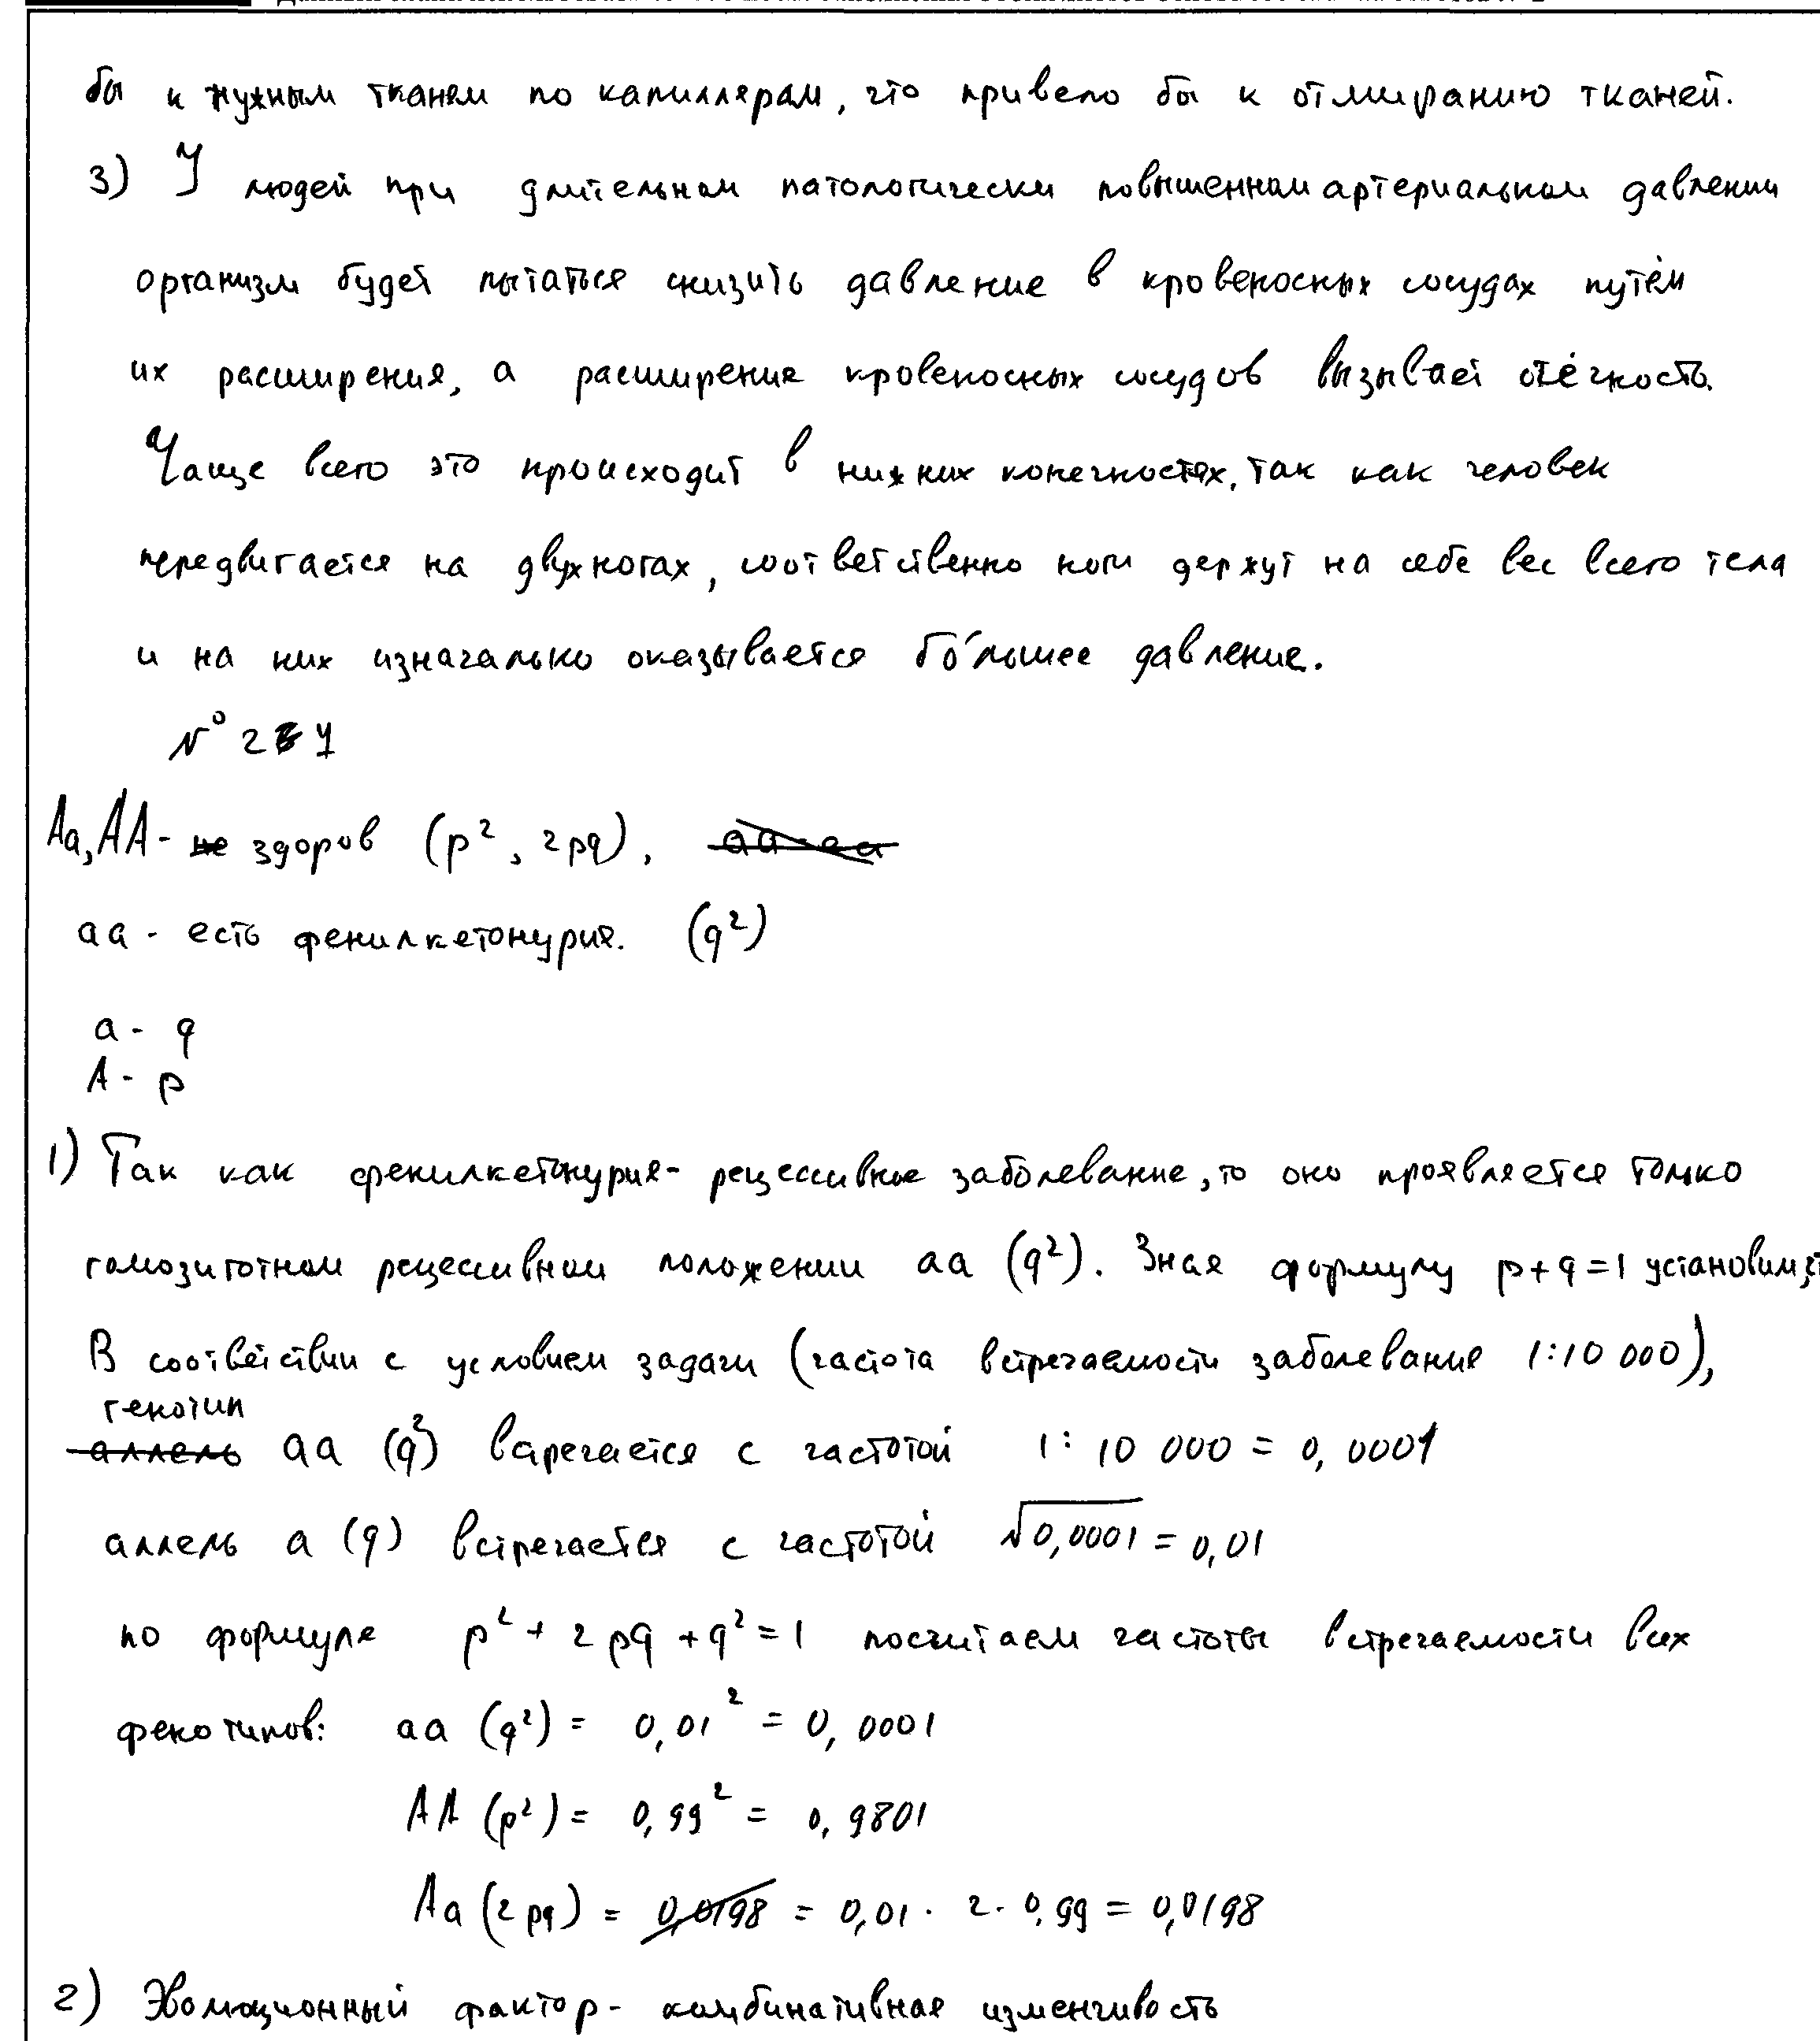 бы к нужным тканям по капиллярам, что привело бы к отмиранию тканей.
3) У людей при длительном патологически повышенном артериальном давлении
организм будет пытаться снизить давление в кровеносных сосудах путём
их расширения, а расширение кровеносных сосудов вызывает отёчность.
Чаще всего это происходит в нижних конечностях, так как человек
передвигается на двух ногах, соответственно ноги держут на себе вес всего тела
и на них изначально оказывается бо́льшее давление.
№ 27
Aa, AA - не здоров (p², 2pq),
aa - есть фенилкетонурия. (q²)
a - q
A - p
1) Так как фенилкетонурия - рецессивное заболевание, то оно проявляется только
гомозиготном рецессивном положении aa (q²). Зная формулу p+q=1 установим,
В соответствии с условием задачи (частота встречаемости заболевания 1:10 000),
генотип
аллель aa (q²) встречается с частотой 1:10 000 = 0,0001
аллель a (q) встречается с частотой √0,0001 = 0,01
по формуле p² + 2pq + q² = 1 посчитаем частоты встречаемости всех
фенотипов: aa (q²) = 0,01² = 0,0001
AA (p²) = 0,99² = 0,9801
Aa (2pq) = 0,0198 = 0,01 · 2 · 0,99 = 0,0198
2) Эволюционный фактор - комбинативная изменчивость